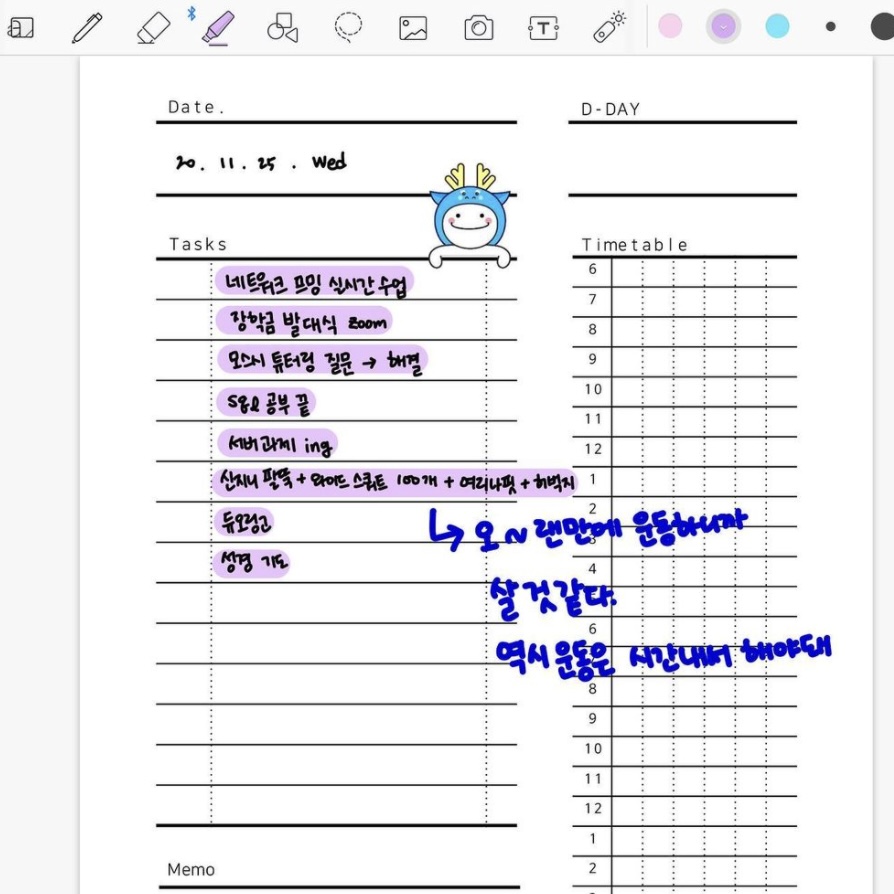 Date.
20. 11. 25 . Wed
D-DAY
Tasks
네트워크 프밍 실시간 수업
장학금 발대식 zoom
오스시 튜터링 질문 → 해결
S&L 공부 끝
서버과제 ing
산지니 팔뚝 + 와이드 스쿼트 100개 + 여리나핏 + 허벅지
듀오링고
성경 기도
↳ 오~랜만에 운동하니까
살 것 같다.
역시 운동은 시간내서 해야돼
Timetable
6
7
8
9
10
11
12
1
2
3
4
6
8
9
10
11
12
1
2
Memo